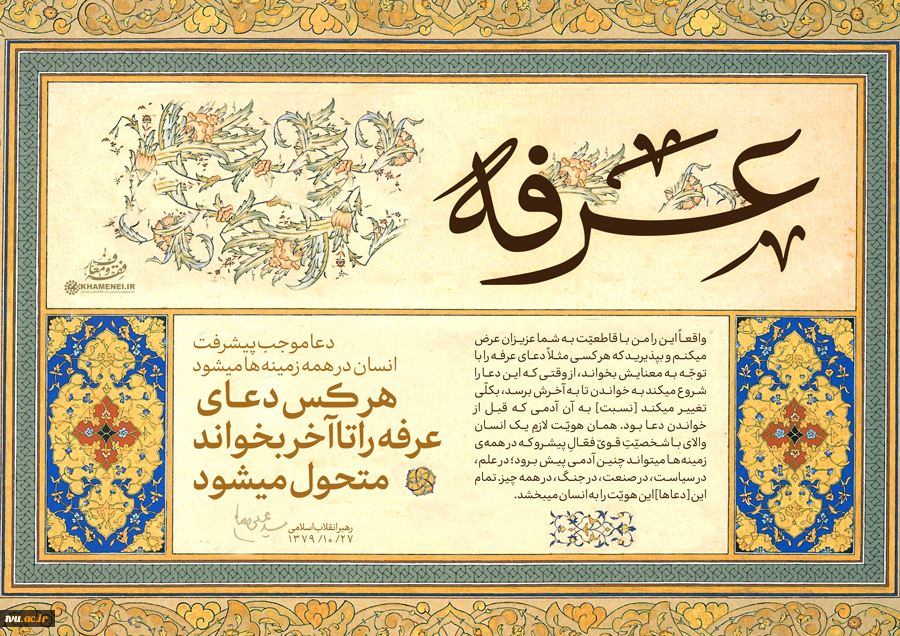 عرفه
فقه و معارف
KHAMENEI.IR
واقعاً این را من با قاطعیّت به شما عزیزان عرض
میکنم و بپذیرید که هر کسی مثلاً دعای عرفه را با
توجّه به معنایش بخواند، از وقتی که این دعا را
شروع میکند به خواندن تا به آخرش برسد، بکلّی
تغییر میکند [نسبت] به آن آدمی که قبل از
خواندن دعا بود. همان هویّت لازمِ یک انسان
والای با شخصیّتِ قویّ فعّالِ پیشرو که در همه‌ی
زمینه‌ها میتواند چنین آدمی پیش برود؛ در علم،
در سیاست، در صنعت، در جنگ، در همه چیز. تمام
این [دعاها] این هویّت را به انسان میبخشد.
دعا موجب پیشرفت
انسان در همه زمینه‌ها میشود
هر کس دعای
عرفه را تا آخر بخواند
متحول میشود
رهبر انقلاب اسلامی
۱۳۷۹/۱۰/۲۷
tvu.ac.ir